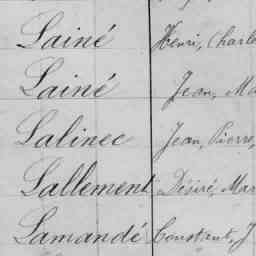 Lainé Henri, Charle
Lainé Jean, Ma
Salinec Jean, Pierre,
Lallement Désiré, Mar
Lamandé Constant, J